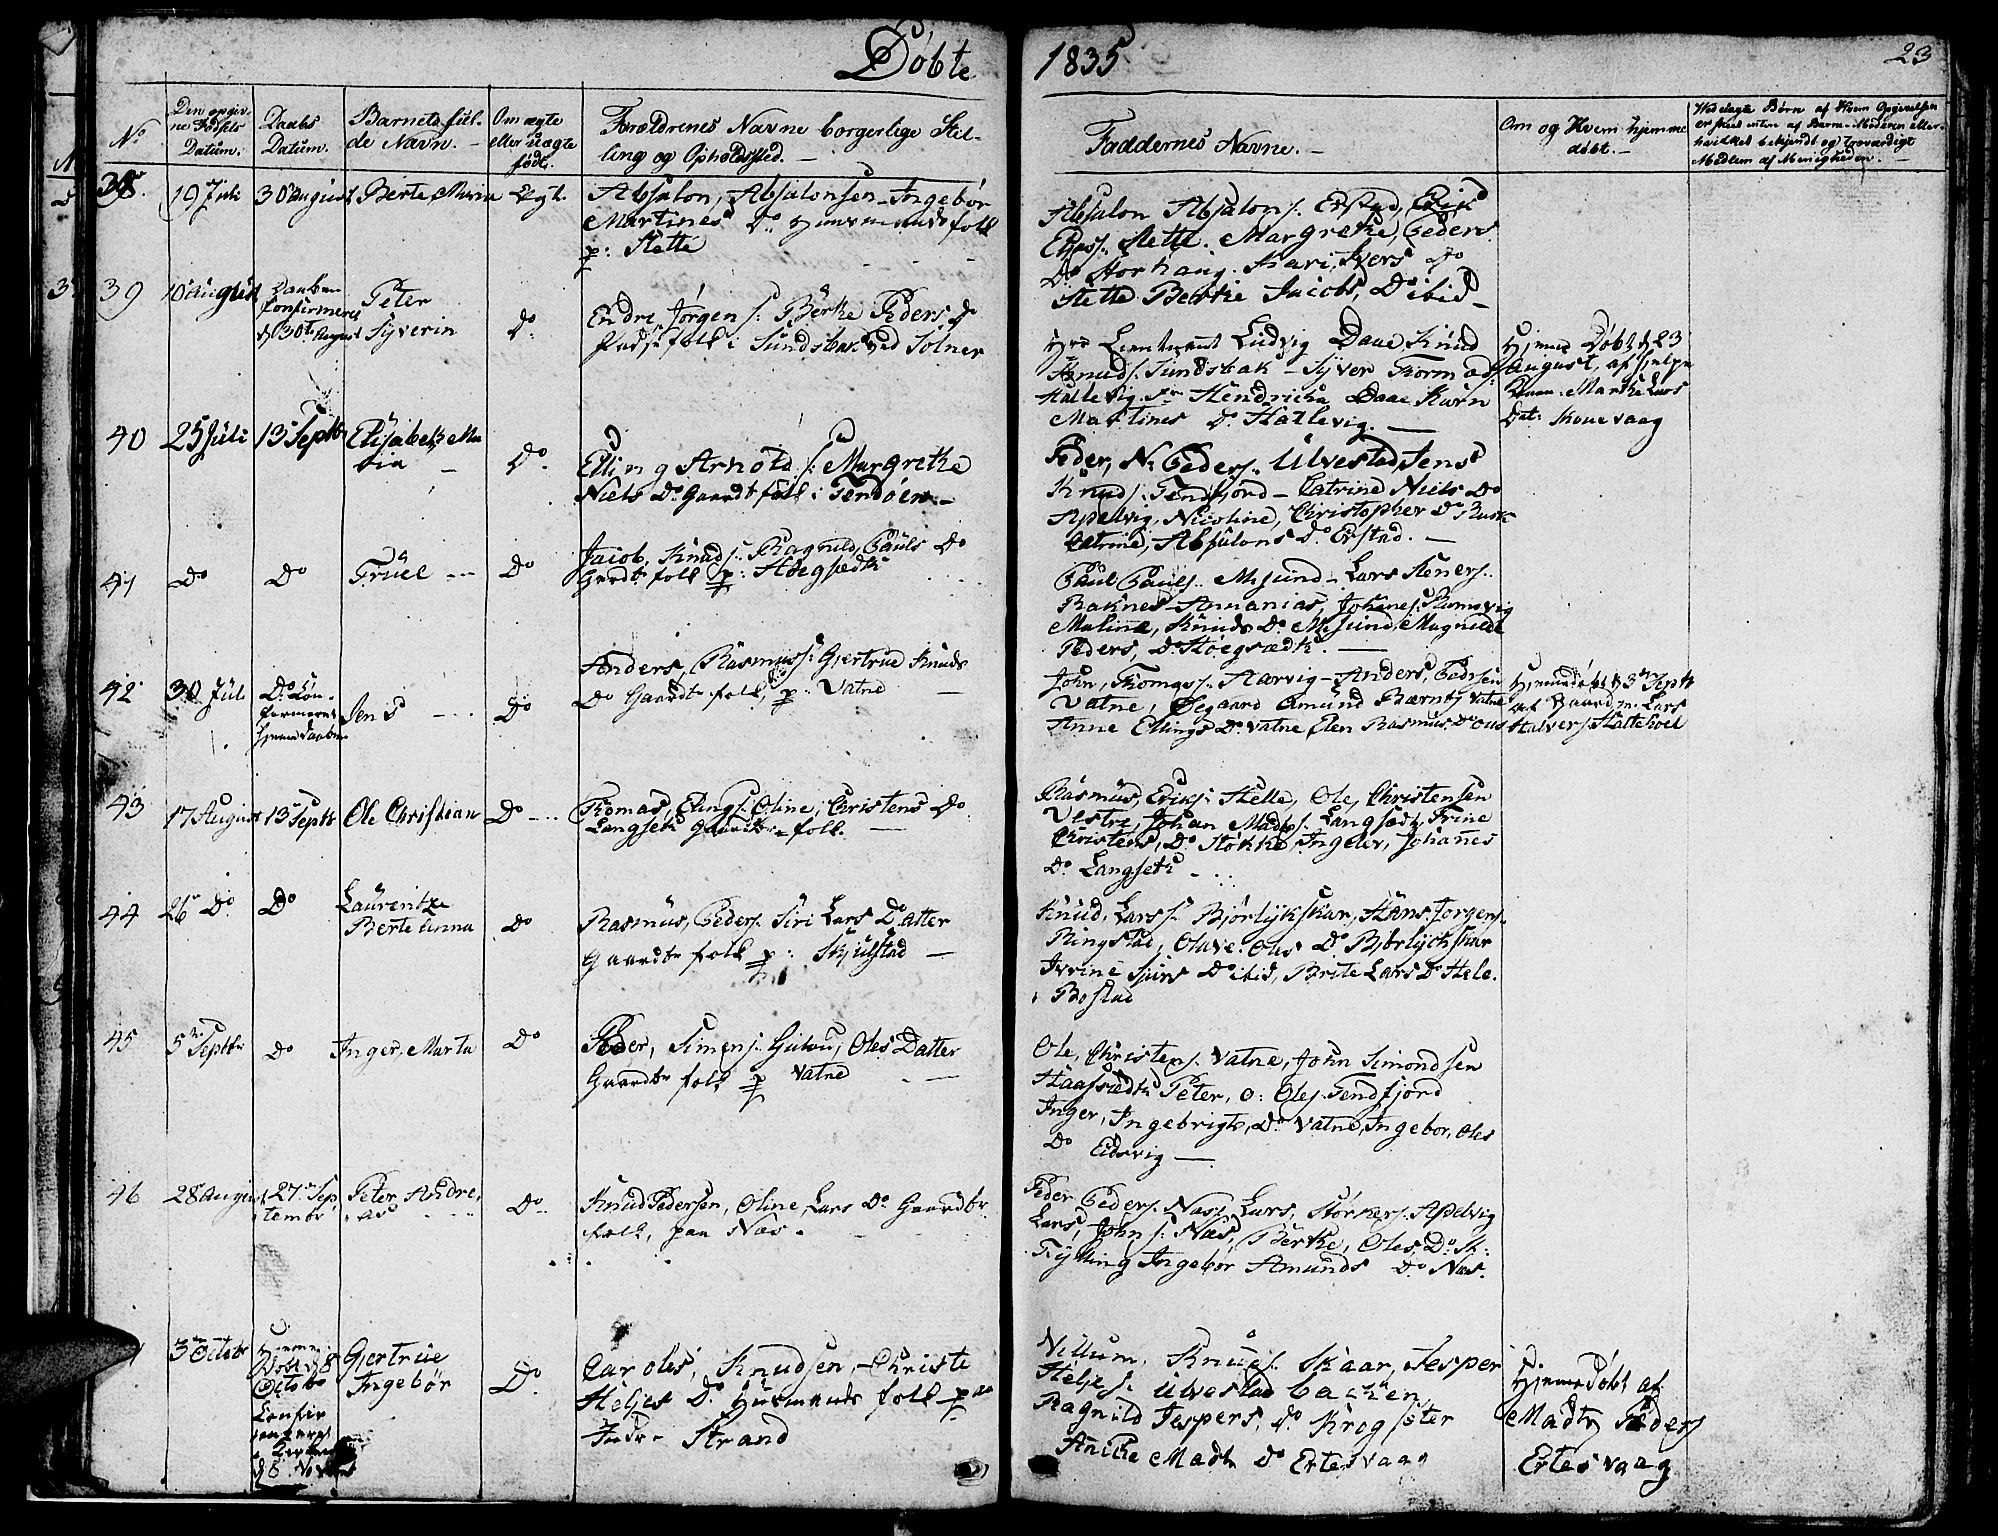 Döbte
1835
23
No
Den opgiv-
ne Födsels
Datum.
Daabs
Datum.
Barnets ful-
de Navn.
Om ægte
eller uægte
född.
Forældrenes Navne borgerlige Stil-
ling og Opholdssted.
Faddernes Navne.
Om og Hvem hjemme
döbt.
Ved uægte Börn af Hvem Opgivelsen
er skeed enten af Barne-Moderen eller
hvilket bekjendt og troværdigt
Medlem af Menigheden.
38. 19 Juli 30 August Berte Maria Ægt.
Absalon, Absalonsen - Ingebör
Martines Do Huusmands folk
p: Slette
Absalon Absalons. Erstad, Erik
Slette. Margrethe, Peders
Do Storhaug. Kari, Ivers Do
Slette Berthe Jacobs, Do ibid
39 10 August Daaben
Confirmeret
d 30te August
Peter
Syverin
Do
Endre Jörgens: Berthe Peders Do
folk i Sundsbak ved Solnör
Hr Lieutnant Ludvig Daae Knud
Knuds: Sundsbak - Syver Tormods
Hallevig Hendricha Daae Karn
Martines Do Hallevig.
Hjemme Döbt d 23
August, af
Marthe Lars
Dat: Skonevaag
40 25 Juli 13 Septbr Elisabeth Ma
ria
Do
Elling Arnold s: Margrethe
Niels Do Gaardb folk i Tendöen
Peder, N. Peders. Ulvestad, Jens
Knuds: Tendfjord - Catrine Niels Do
Apelvig, Nicoline, Christopher Do
Catrine, Absalons Do Erstad.
41 Do Do Truel Do
Jacob, Knuds: Ragnild, Pauls Do
Gardb folk p:
Paul Pauls. Misund - Lars Steners.
Baknes - Annanias, Johanes: Ramsvig
Maline, Knuds Do Misund, Magnilde
Peders, Do
42 30 Juli Do Con-
fermeret
Hjemdaaben
Jens Do
Anders, Rasmuss: Gjertrue Knuds
Do Gaardb folk, p: Vatne
John, Thomas: Aarvig - Anders, Pedersen
Vatne, Öegaard Amund Bærnts Vatne
Anne Ellings Do Vatne Elen Rasmus Do
Hjemmedöbt d 3de Septb
af Gaardm. Lars
Halvers: Hattehoel
43 17 August 13 Septb Ole Christian Do
Thomas, Elings: Oline, Christens Do
Langseth Gaardbr folk.
Rasmus, Eriks: Helle, Ole, Christensen
Vestre, Johan Mads: Langsæth, Trine
Christens, Do Stokke, Ingeler, Johanes
Do Langseth
44 26 Do Do Laurentze
Berte Anna
Do
Rasmus, Peders. Siri Lars Datter
Gaardbr folk p: Skjulstad
Knud, Lars s: Björlykskar, Hans Jorgens.
Ringstad, Oluve. Oles Do Björlychskar
Ivrine Do ibid, Brite Lars Do Hele.
Bostad
45 5 Septbr Do Inger, Marta Do
Peder, Simens: Oles Datter
Gaardbr folk p: Vatne
Ole, Christens. Vatne, John Simondsen
Peter, O: Oles. Tendfjord
Inger, Ingebrigts, Do Vatne, Ingebor, Oles
Do Eidsvig
46 28 August 27 Sep
tembr
Peter Andre,
as
Do
Knud Pedersen, Oline, Lars Do Gaardbr
folk, paa Næs
Peder Peders. Næs, Lars, Störkers. Apelvig
Lars, John s: Næs, Berthe, Oles, Do St:
Tylling Ingebor Amunds Do Næs.
3 Octobr Hjemme
Döbt d 8
Octobr
Confir
meret
i Kirken
d 8 Novbr
Gjertrue
Ingebör
Do
Caroles, Knudsen, Christi
Heljes Do Husmands folk paa
Indre Strand
Villum, Knuds. Skaar, Jesper
Heljes: Ulvestad bachen
Ragnild Jespers, Do Krogsæter
Aniche Mads Do Ertesvaag
Hjemme Döbt af
Mads Peders
Ertesvaag